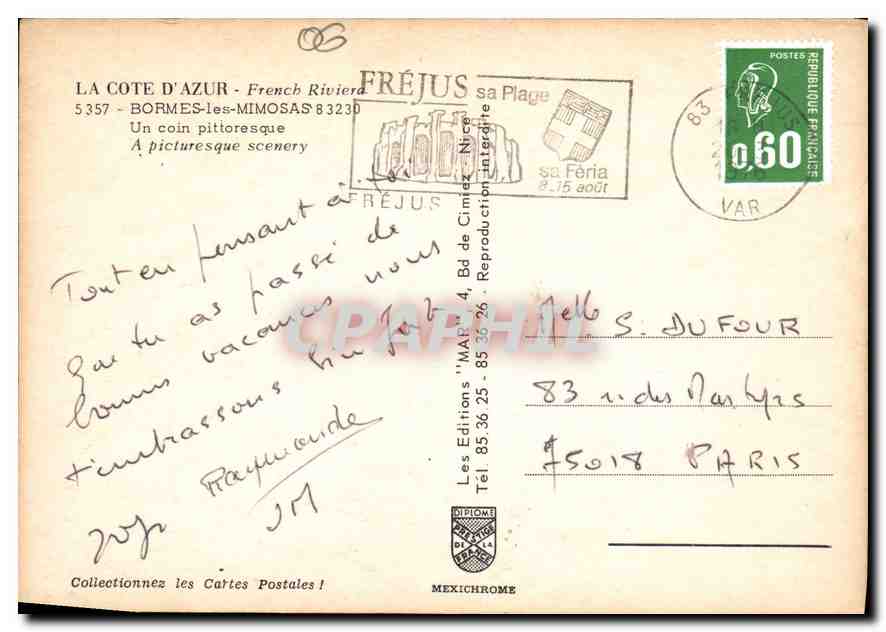 06
LA COTE D'AZUR - French Riviera
5357 - BORMES-les-MIMOSAS 83230
Un coin pittoresque
A picturesque scenery
FRÉJUS sa Plage
sa Féria
8_15 août
FRÉJUS
83
VAR
POSTES
REPUBLIQUE FRANÇAISE
0,60
Tout en pensant à toi
Que tu as passé de
bonnes vacances nous
t'embrassons bien fort
Raymonde
JM
Les Editions "MAR" 4, Bd de Cimiez Nice
Tél. 85.36.25 - 85 36 26. Reproduction interdite
CPAPHIL
Melle S. DUFOUR
83 r. des Martyrs
75018 PARIS
DIPLOME
PRESTIGE
DE LA
FRANCE
MEXICHROME
Collectionnez les Cartes Postales !